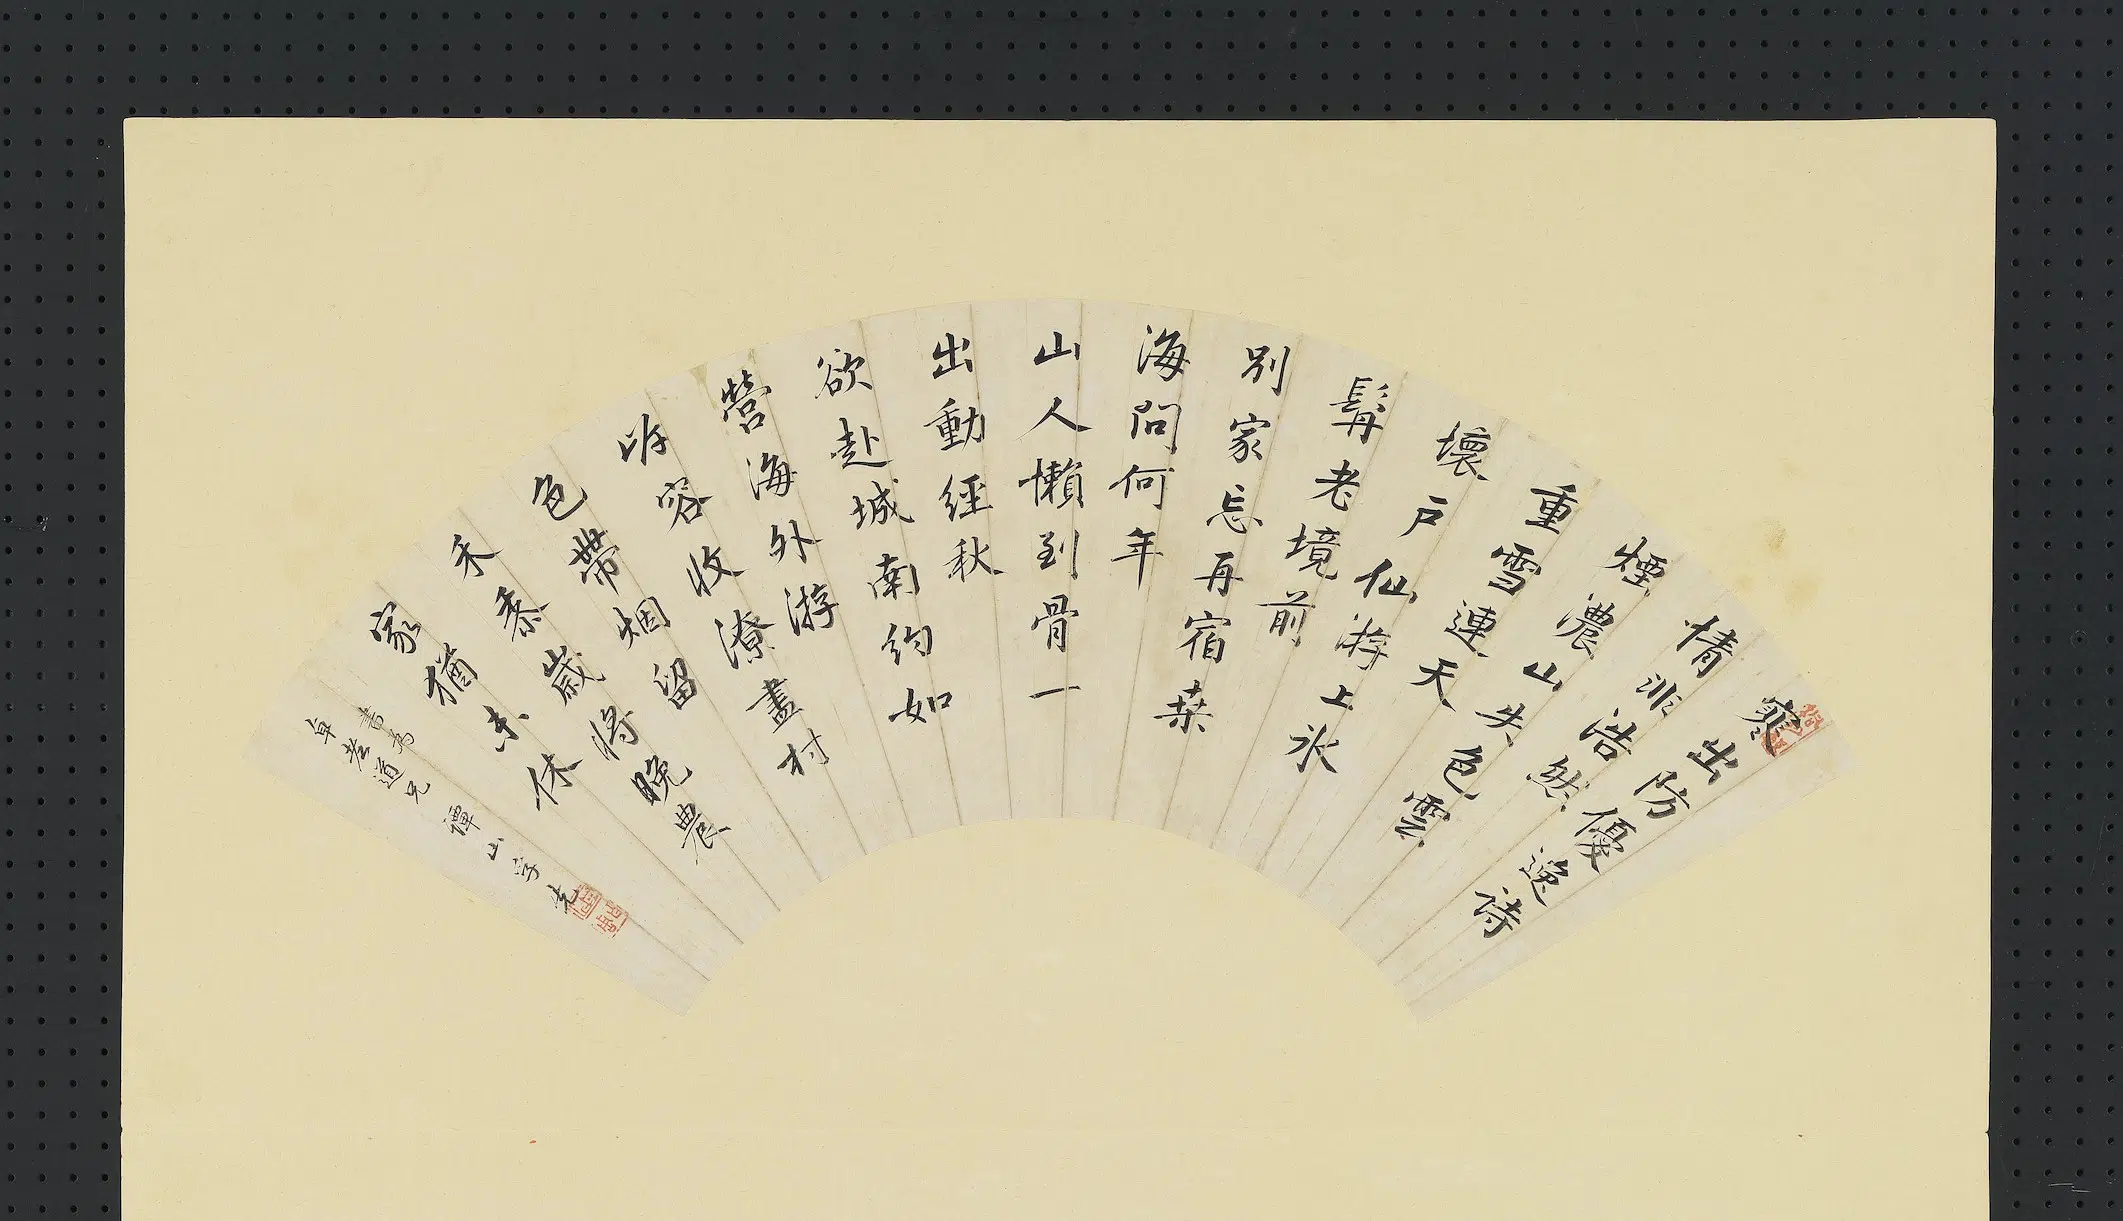 寒出防優逸詩
情非浩然
煙濃山失色雲
重雪連天
壞戶仙游上氷
髯老境前
別家忘再宿桒
海問何年
山人懶到骨一
出動經秋
欲赴城南約如
營海外游
岸容收潦盡村
色帶烟留
禾黍歲將晚農
家猶未休
書為
卓 道兄 山